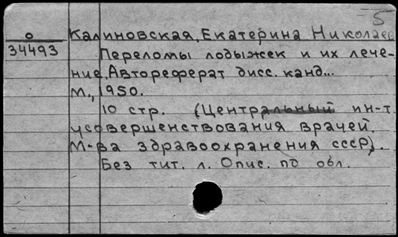 5
О Калиновская, Екатерина Николаев
34493 Переломы лодыжек и их лече-
ние. Автореферат дисс. канд...
М., 1950.
10 стр. (Центральный ин-т
усовершенствования врачей.
М-ва здравоохранения СССР).
Без тит. л. Опис. по обл.